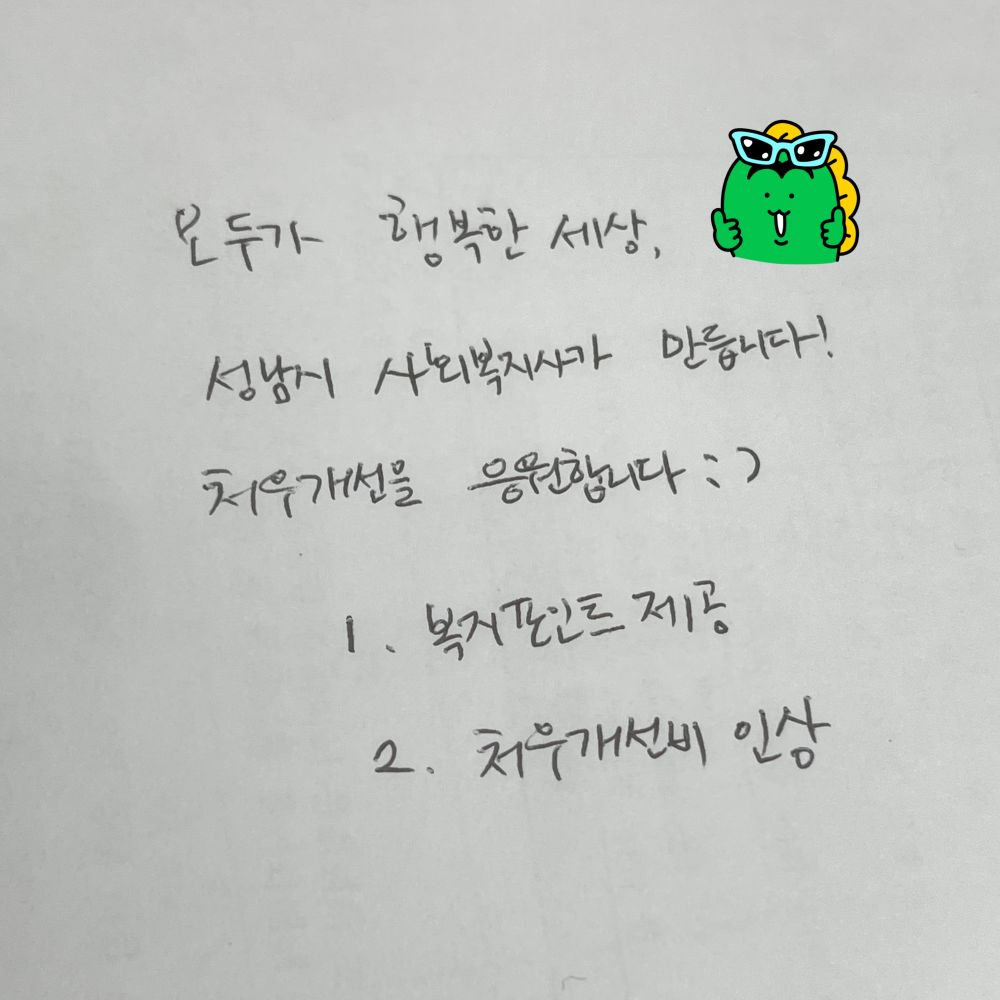 모두가 행복한 세상,
성남시 사회복지사가 만듭니다!
처우개선을 응원합니다 :)
1. 복지포인트 제공
2. 처우개선비 인상